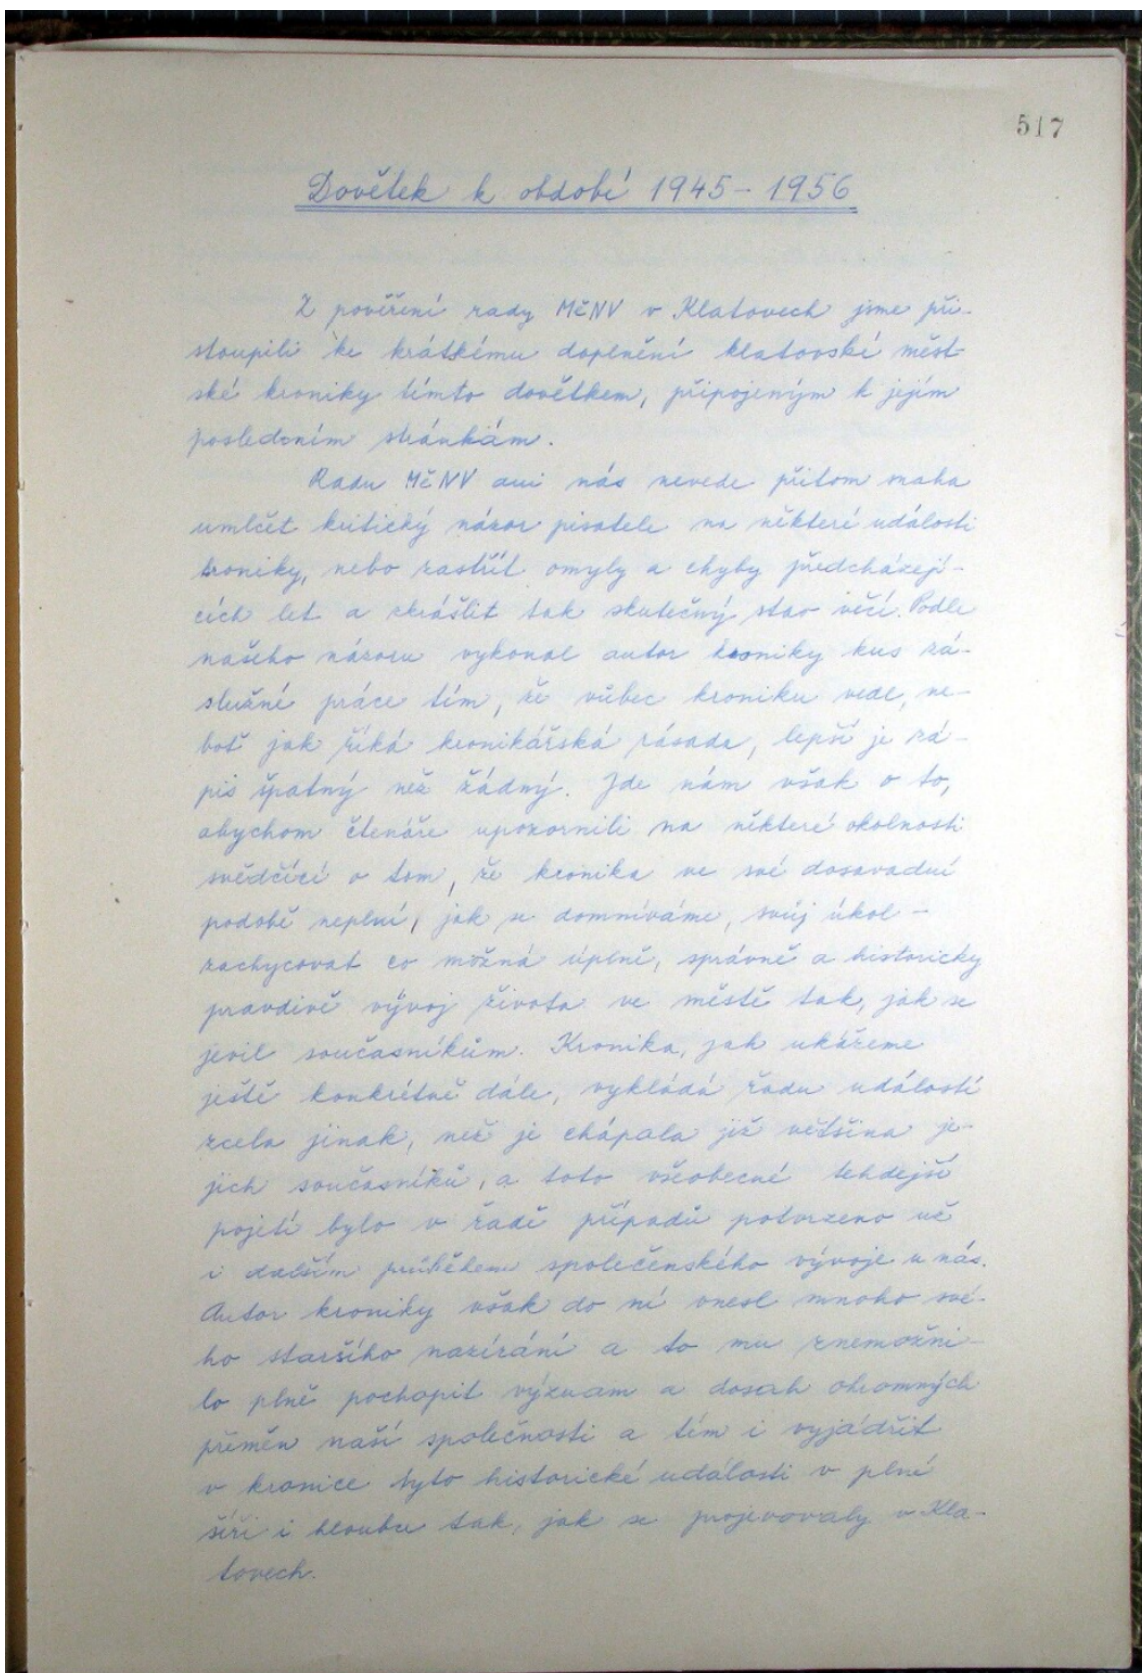 517
Dovětek k období 1945 - 1956
Z pověření rady MěNV v Klatovech jsme při-
stoupili ke krátkému doplnění klatovské měst-
ské kroniky tímto dovětkem, připojeným k jejím
posledním stránkám.
Radu MěNV ani nás nevede přitom snaha
umlčet kritický názor pisatele na některé události
kroniky, nebo zastřít omyly a chyby předcházejí-
cích let a zkrášlit tak skutečný stav věcí. Podle
našeho názoru vykonal autor kroniky kus zá-
služné práce tím, že vůbec kroniku vedl, ne-
boť jak říká kronikářská zásada, lepší je zá-
pis špatný než žádný. Jde nám však o to,
abychom čtenáře upozornili na některé okolnosti
svědčící o tom, že kronika ve své dosavadní
podobě neplní, jak se domníváme, svůj úkol -
zachycovat co možná úplně, správně a historicky
pravdivě vývoj života ve městě tak, jak se
jevil současníkům. Kronika, jak ukážeme
ještě konkrétně dále, vykládá řadu událostí
zcela jinak, než je chápala již většina je-
jich současníků, a toto všeobecné tehdejší
pojetí bylo v řadě případů potvrzeno už
i dalším průběhem společenského vývoje u nás.
Autor kroniky však do ní vnesl mnoho své-
ho staršího nazírání a to mu znemožni-
lo plně pochopit význam a dosah ohromných
přeměn naší společnosti a tím i vyjádřit
v kronice tyto historické události v plné
šíři i hloubce tak, jak se projevovaly v Kla-
tovech.